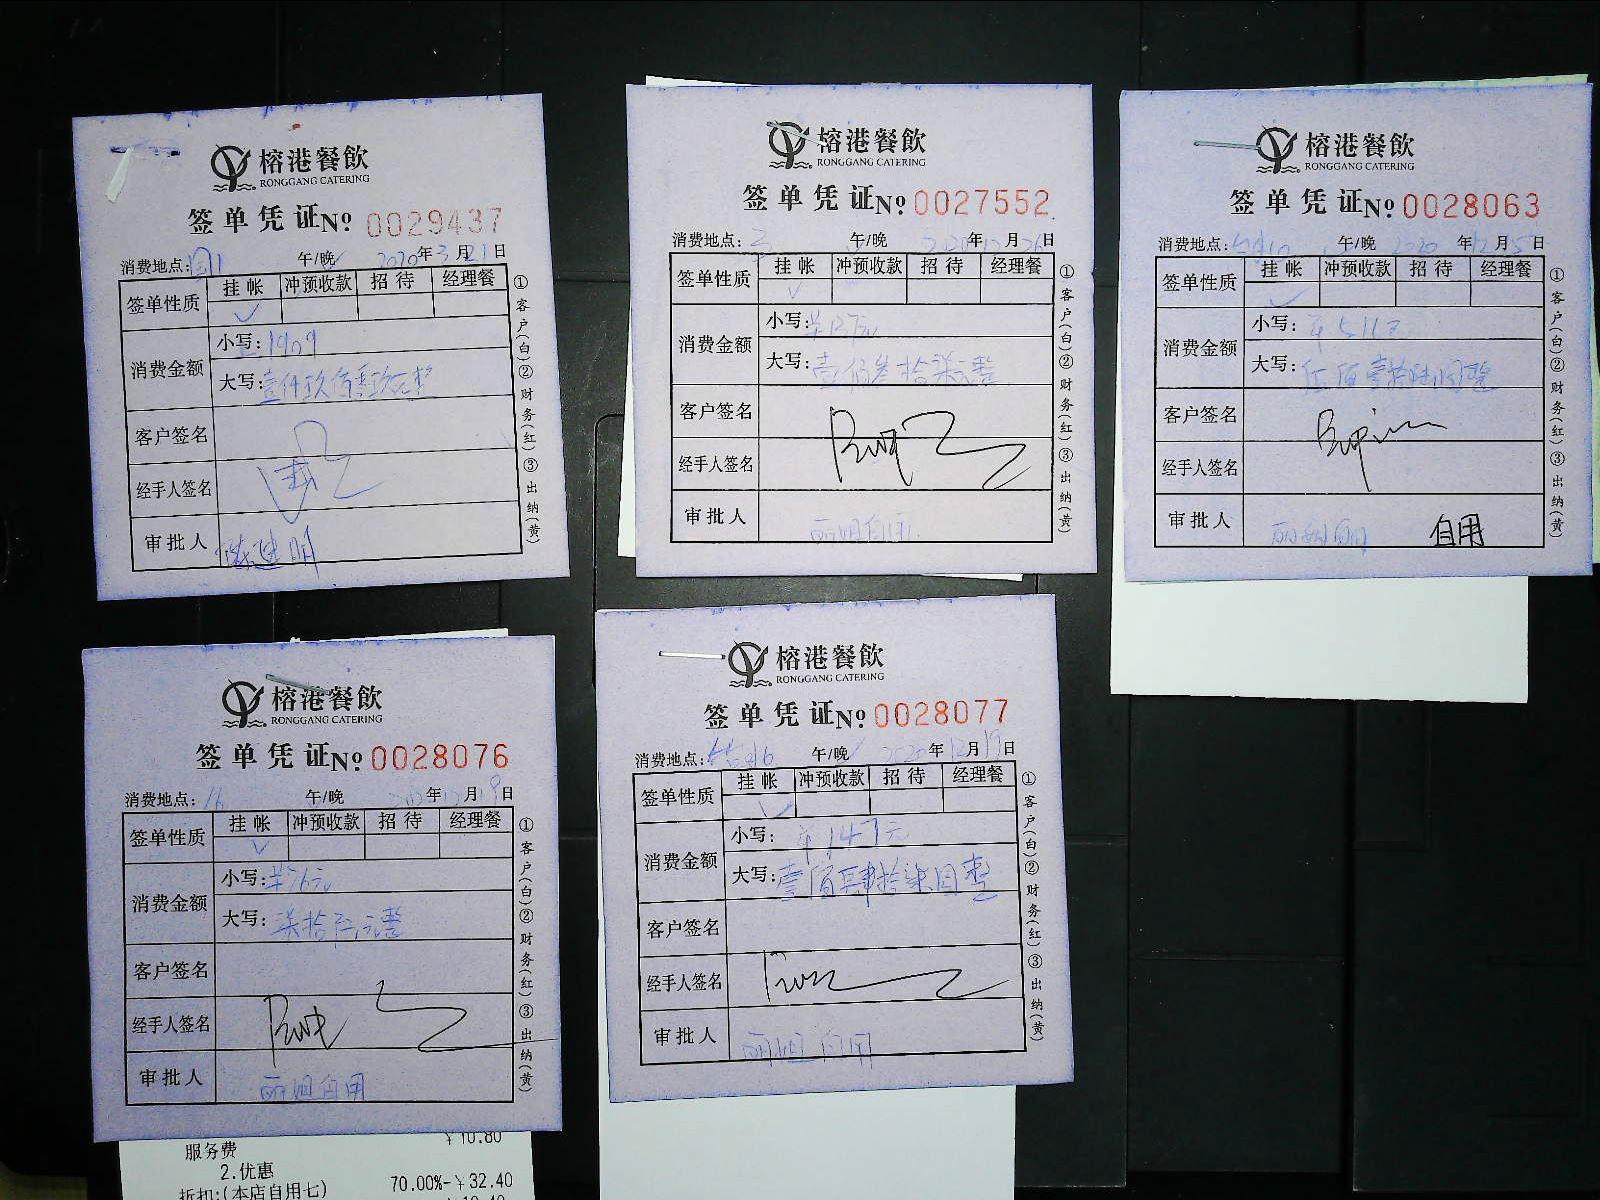 榕港餐飲
RONGGANG CATERING
签单凭证№ 0029437
消费地点: 午/晚 2020年3月21日
签单性质 挂帐 冲预收款 招待 经理餐
✓
消费金额 小写: 1909
大写: 壹仟玖佰零玖元整
客户签名
经手人签名
审批人
①客户(白)②财务(红)③出纳(黄)
榕港餐飲
RONGGANG CATERING
签单凭证№ 0027552
消费地点: 午/晚 年 月26日
签单性质 挂帐 冲预收款 招待 经理餐
✓
消费金额 小写: ¥137元
大写: 壹佰叁拾柒元整
客户签名
经手人签名
审批人 丽姐自用
①客户(白)②财务(红)③出纳(黄)
榕港餐飲
RONGGANG CATERING
签单凭证№ 0028063
消费地点: 午/晚 2020年12月 日
签单性质 挂帐 冲预收款 招待 经理餐
✓
消费金额 小写:
大写:
客户签名
经手人签名
审批人 丽姐自用 自用
①客户(白)②财务(红)③出纳(黄)
榕港餐飲
RONGGANG CATERING
签单凭证№ 0028076
消费地点: 16 午/晚 年12月19日
签单性质 挂帐 冲预收款 招待 经理餐
✓
消费金额 小写: ¥76元
大写: 柒拾陆元整
客户签名
经手人签名
审批人 丽姐自用
①客户(白)②财务(红)③出纳(黄)
服务费 ¥10.80
2.优惠
折扣:(本店自用七) 70.00%-¥32.40
榕港餐飲
RONGGANG CATERING
签单凭证№ 0028077
消费地点: 午/晚 2020年12月19日
签单性质 挂帐 冲预收款 招待 经理餐
✓
消费金额 小写: ¥147元
大写: 壹佰肆拾柒圆整
客户签名
经手人签名
审批人 丽姐自用
①客户(白)②财务(红)③出纳(黄)